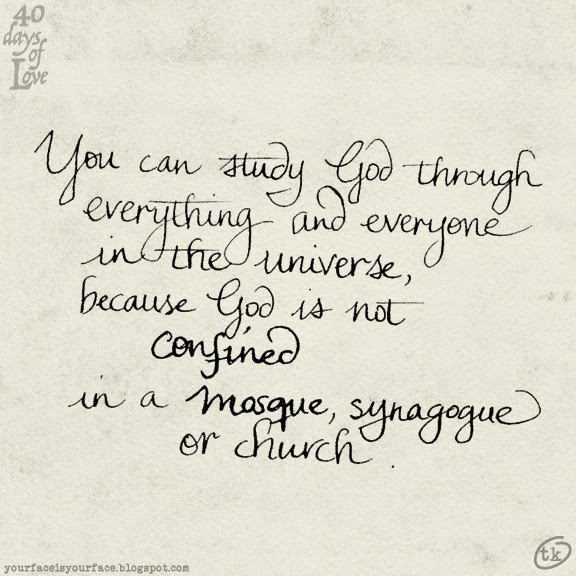 40
days
of
Love
You can study God through
everything and everyone
in the universe,
because God is not
confined
in a mosque, synagogue
or church.
yourfaceisyourface.blogspot.com
tk